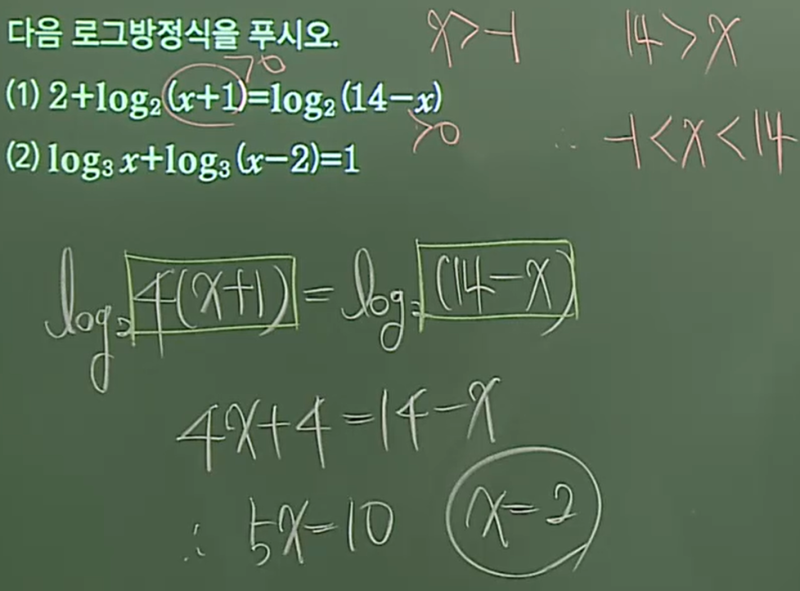 다음 로그방정식을 푸시오.
x>-1
14>x
>0
(1) 2+log₂(x+1)=log₂(14−x)
>0
∴ -1<x<14
(2) log₃x+log₃(x−2)=1
log₂ 4(x+1) = log₂ (14−x)
4x+4=14−x
∴ 5x=10
x=2